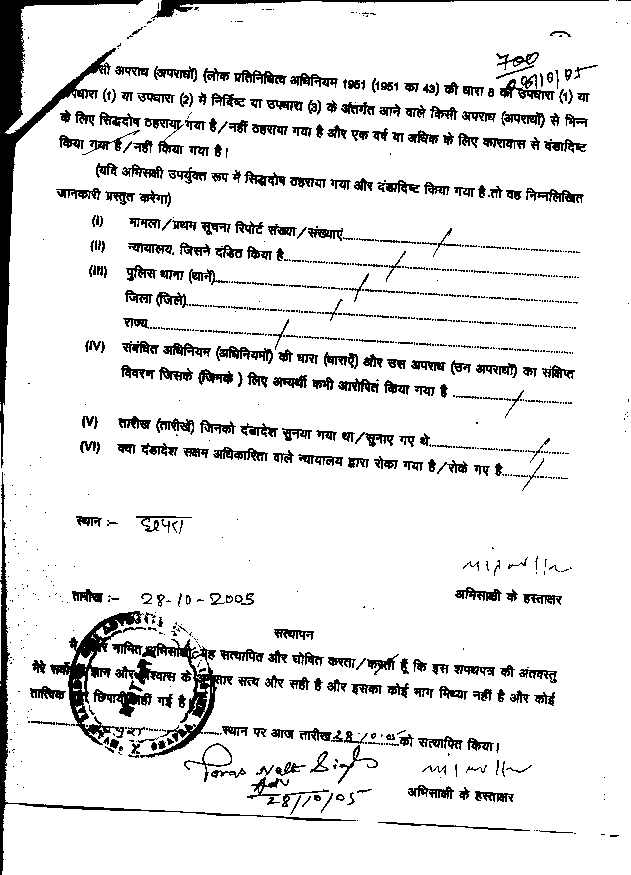 700
28/10/05
सी अपराध (अपराधों) (लोक प्रतिनिधित्व अधिनियम 1951 (1951 का 43) की धारा 8 की उपधारा (1) या
उपधारा (1) या उपधारा (2) में निर्दिष्ट या उपधारा (3) के अंतर्गत आने वाले किसी अपराध (अपराधों) से भिन्न
के लिए सिद्धदोष ठहराया गया है/नहीं ठहराया गया है और एक वर्ष या अधिक के लिए कारावास से दंडादिष्ट
किया गया है/नहीं किया गया है।
(यदि अभिसाक्षी उपर्युक्त रूप में सिद्धदोष ठहराया गया और दंडादिष्ट किया गया है तो वह निम्नलिखित
जानकारी प्रस्तुत करेगा)
(I) मामला/प्रथम सूचना रिपोर्ट संख्या/संख्याएं
(II) न्यायालय, जिसने दंडित किया है
(III) पुलिस थाना (थाने)
जिला (जिले)
राज्य
(IV) संबंधित अधिनियम (अधिनियमों) की धारा (धाराएँ) और उस अपराध (उन अपराधों) का संक्षिप्त
विवरण जिसके (जिनके) लिए अभ्यर्थी कभी आरोपित किया गया है
(V) तारीख (तारीखें) जिनको दंडादेश सुनया गया था/सुनाए गए थे
(VI) क्या दंडादेश सक्षम अधिकारिता वाले न्यायालय द्वारा रोका गया है/रोके गए है
स्थान :- छपरा
तारीख :- 28-10-2005
अभिसाक्षी के हस्ताक्षर
सत्यापन
नामित अभिसाक्षी यह सत्यापित और घोषित करता/करती हूँ कि इस शपथपत्र की अंतवस्तु
मेरे ज्ञान और विश्वास के सार सत्य और सही है और इसका कोई भाग मिथ्या नहीं है और कोई
तात्विक छिपायी नहीं गई है
स्थान पर आज तारीख 28/10/05 को सत्यापित किया।
NOTARY
Singh
Adv
28/10/05
अभिसाक्षी के हस्ताक्षर